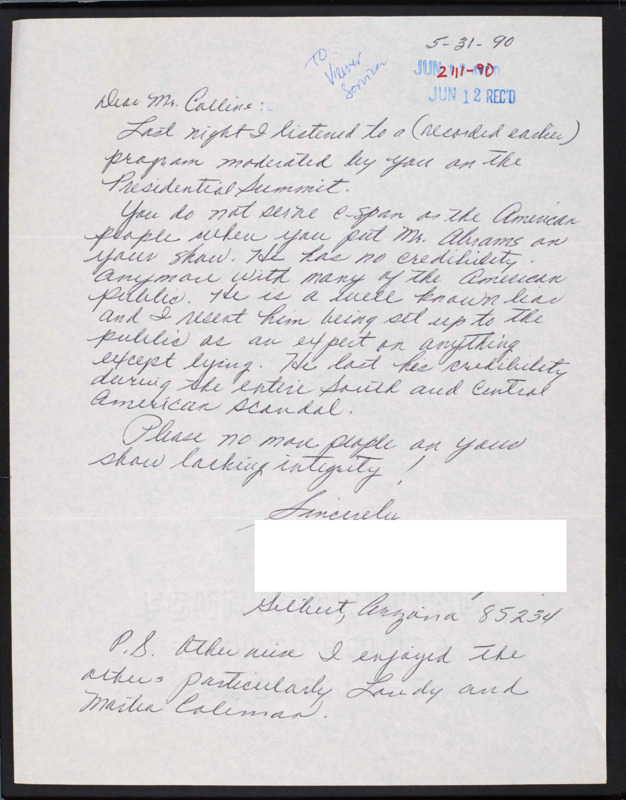 5-31-90
To:
Viewer
Services
JUN
2111-90
JUN 12 REC'D
Dear Mr. Colline:
Last night I listened to a (recorded earlier)
program moderated by you on the
Presidential Summit.
You do not serve C-Span or the American
people when you put Mr. Abrams on
your show. He has no credibility
anymore with many of the American
public. He is a well known liar
and I resent him being set up to the
public as an expert on anything
except lying. He lost his credibility
during the entire South and Central
American scandal.
Please no more people on your
show lacking integrity!
Sincerely
Gilbert, Arizona 85234
P.S. Otherwise I enjoyed the
others particularly Landy and
Marlin Coleman.